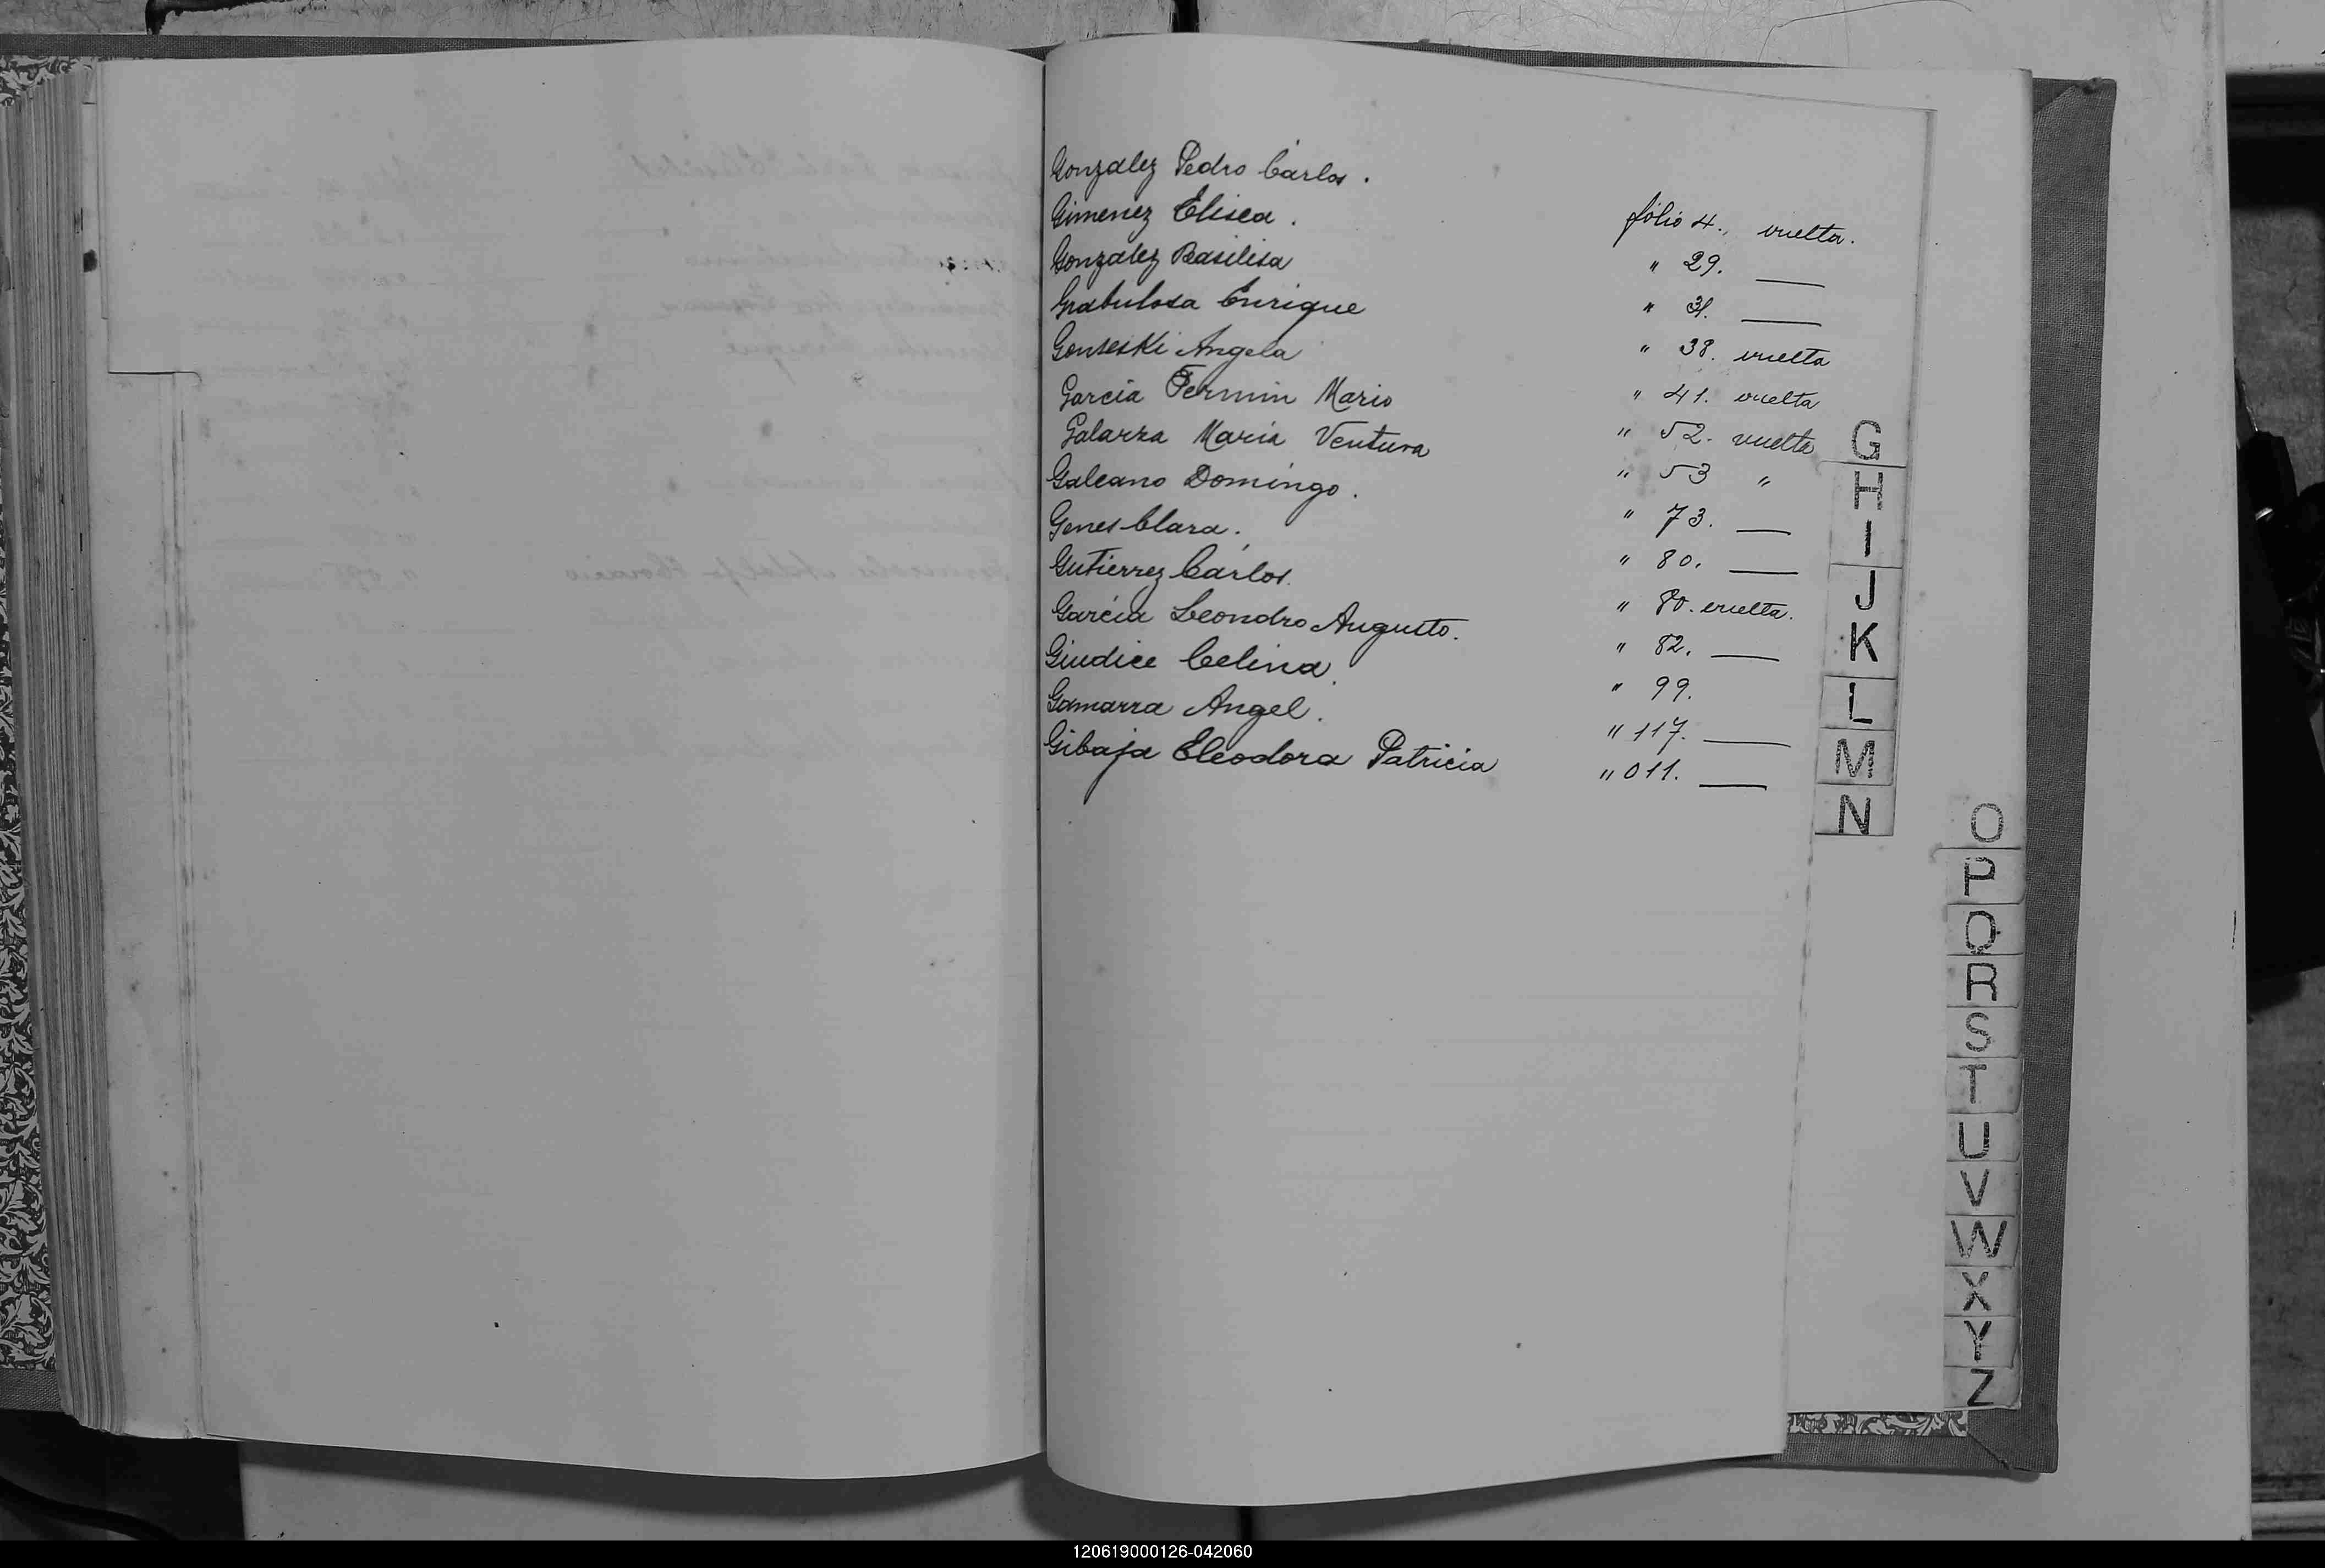 Gonzalez Pedro Cárlos. fólio 4., vuelta.
Gimenez Elisea. " 29. ——
Gonzalez Basilisa " 31. ——
Grabulosa Enrique " 38. vuelta
Gonseski Angela " 41. vuelta
Garcia Fermin Mario " 52. vuelta
Galarza Maria Ventura " 53 "
Galeano Domingo. " 73. ——
Genes Clara. " 80. ——
Gutierrez Cárlos. " 80. vuelta.
Garcia Leondro Augusto. " 82. ——
Giudice Celina. " 99.
Gamarra Angel. " 117. ——
Gibaja Eleodora Patricia " 011. ——
G
H
I
J
K
L
M
N
O
P
Q
R
S
T
U
V
W
X
Y
Z
120619000126-042060